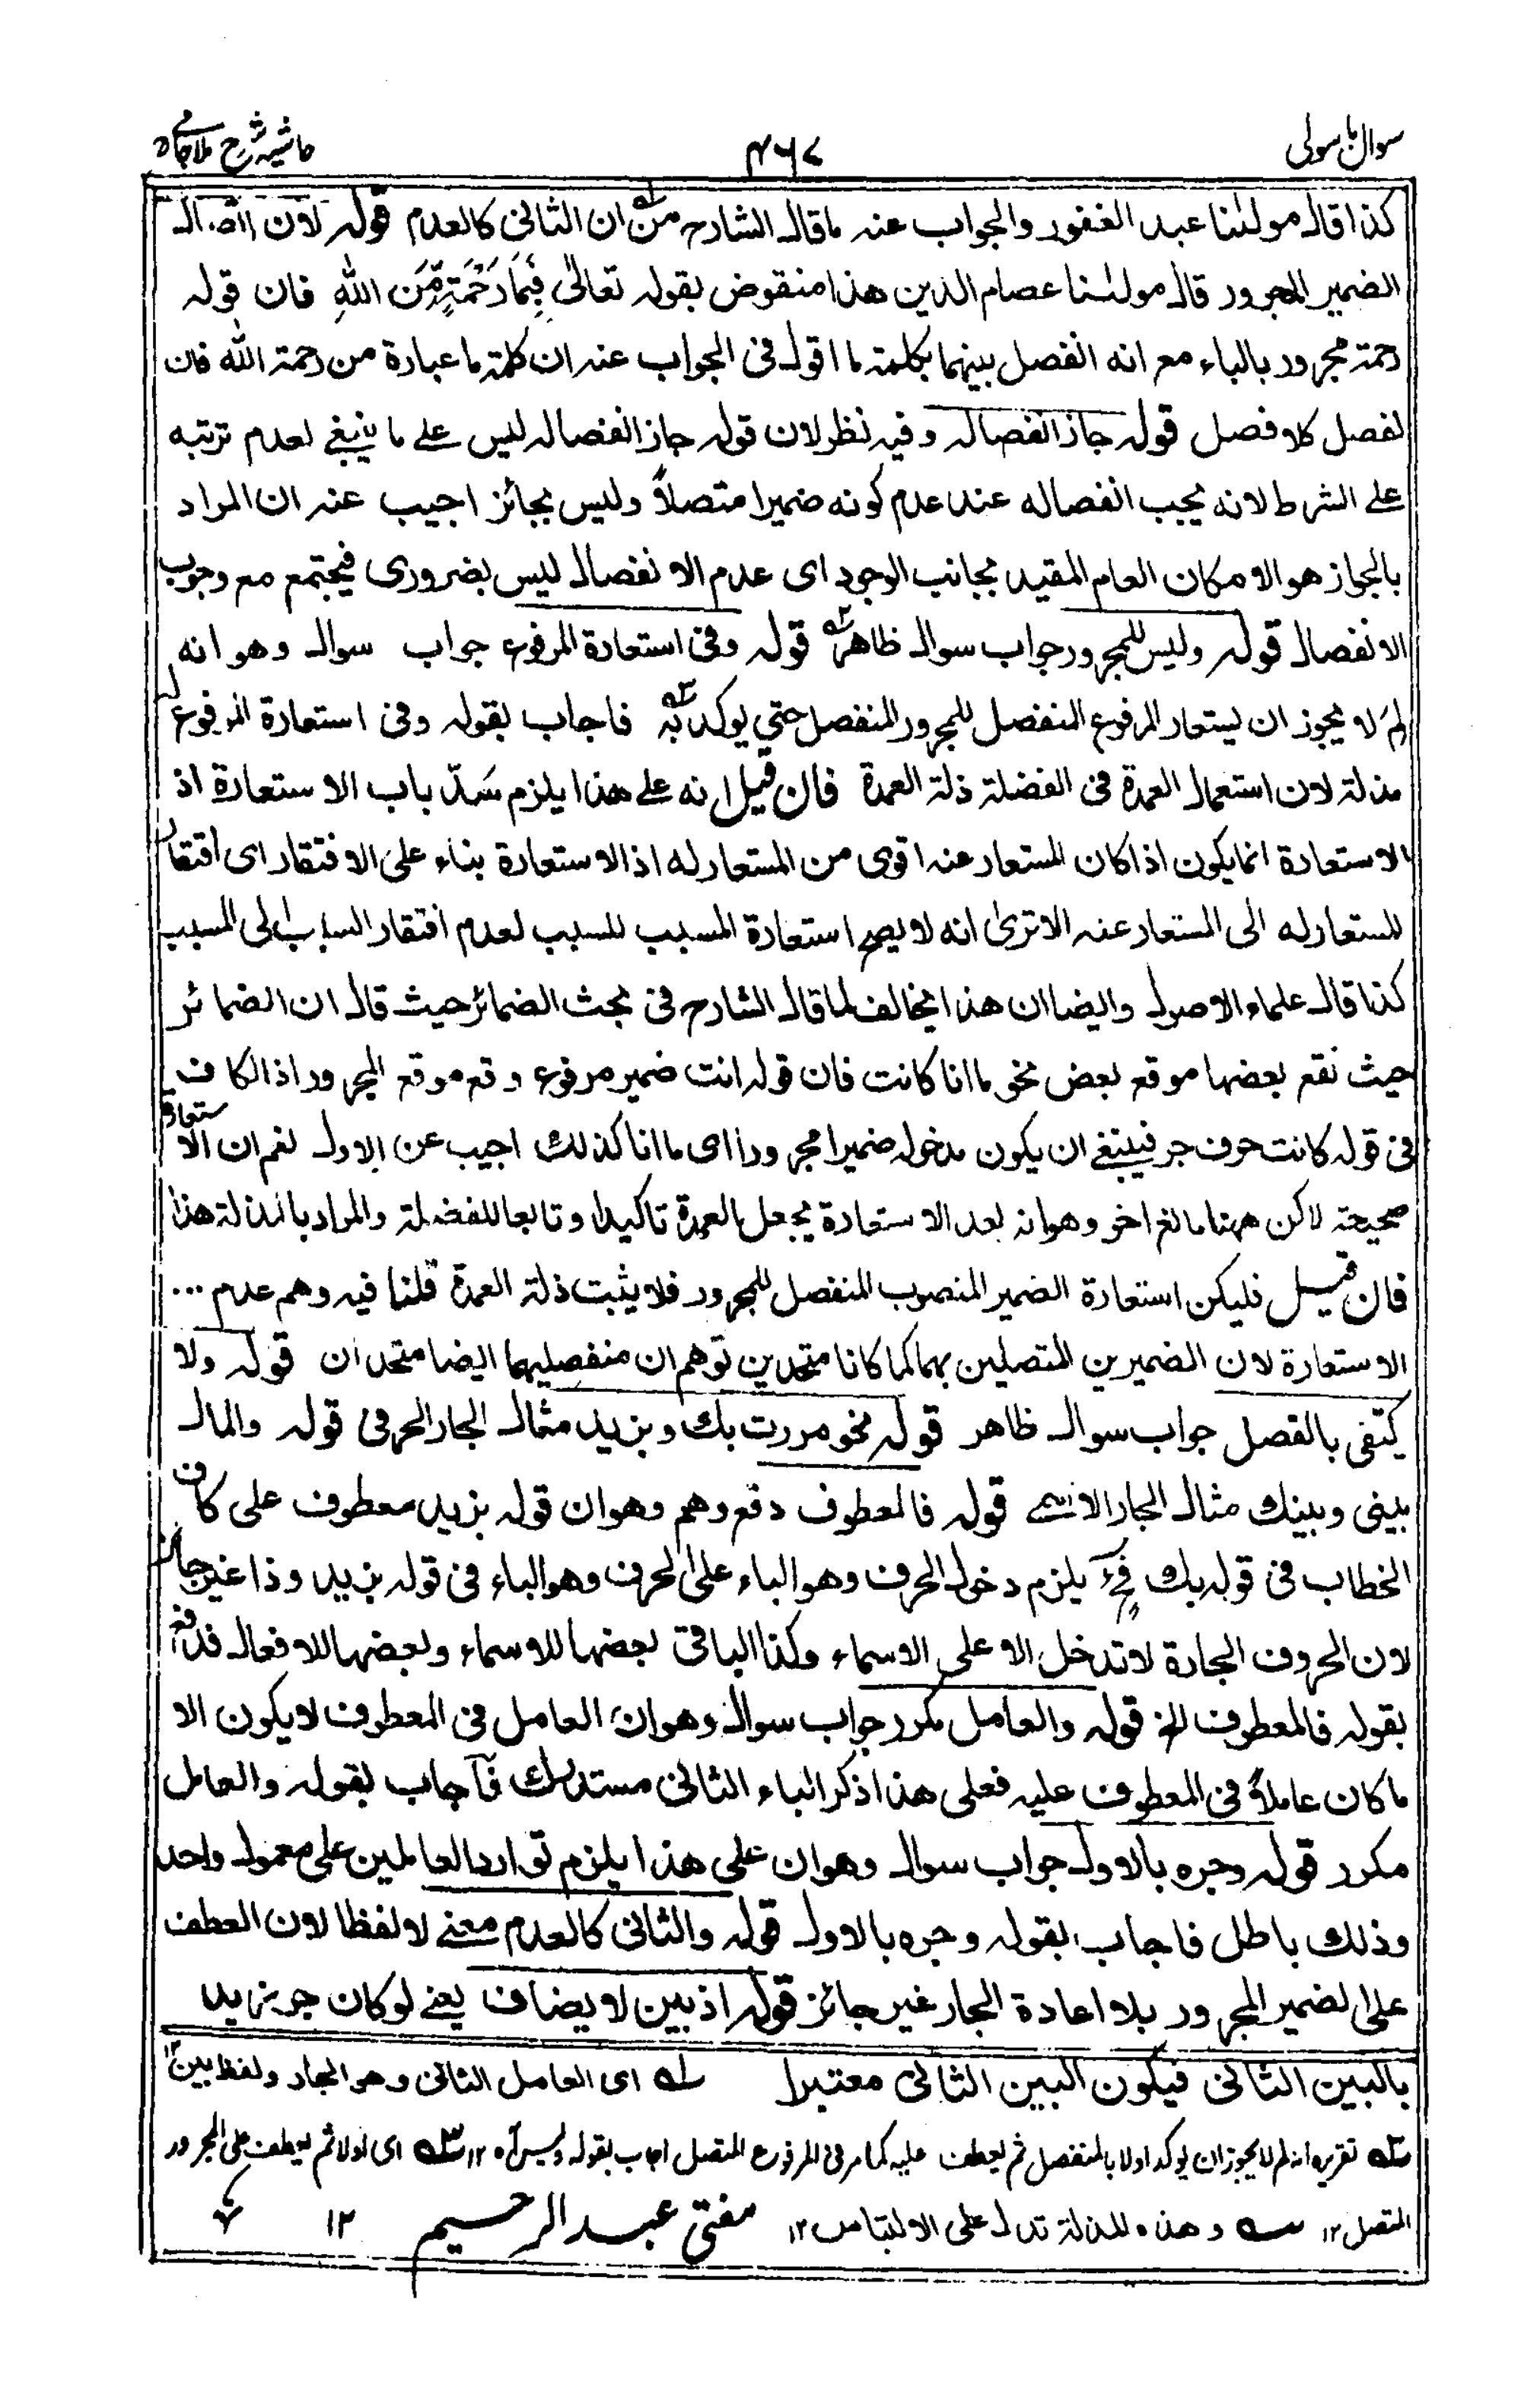 سوال باسولی
۴۶۷
حاشیہ شرح ملا جامی
كذا قال مولٰنا عبد الغفور والجواب عنه ما قال الشارح من ان الثانی كالعدم قوله لان اتصال
الضمير المجرور قال مولٰنا عصام الدين هذا منقوض بقوله تعالٰى فَبِمَا رَحْمَةٍ مِّنَ اللّٰهِ فان قوله
رحمة مجرور بالباء مع انه الفصل بينهما بكلمة ما اقول فی الجواب عنه ان كلمة ما عبارة من رحمة الله فان
لفصل كلا فصل قوله جاز انفصاله وفيه نظر لان قوله جاز انفصاله ليس علے ما ينبغے لعدم ترتبه
علے الشرط لانه يجب انفصاله عند عدم كونه ضميرا متصلاً وليس بجائز اجيب عنه ان المراد
بالجواز هو الامكان العام المقيد بجانب الوجود ای عدم الانفصال ليس بضروری فيجتمع مع وجوب
الانفصال قوله وليس للمجرور جواب سوال ظاهر قوله وفی استعارة المرفوع جواب سوال وهو انه
لِمَ لا يجوز ان يستعار المرفوع المنفصل للمجرور المنفصل حتی يوكد به فاجاب بقوله وفی استعارة المرفوع له
مذلة لان استعمال العمدة فی الفضلة ذلة العمدة فان قيل انه علے هذا يلزم سَدّ باب الاستعارة اذ
الاستعارة انما يكون اذا كان المستعار عنه اقوی من المستعار له اذ الاستعارة بناء علی الافتقار ای افتقار
المستعار له الی المستعار عنه الا تریٰ انه لا يصح استعارة المسبب للسبب لعدم افتقار السبب الی المسبب
كذا قال علماء الاصول وايضا ان هذا يخالف لما قال الشارح فی بحث الضمائر حيث قال ان الضمائر
حيث تقع بعضها موقع بعض نحو ما انا كانت فان قوله انت ضمير مرفوع وقع موقع المجرور اذ الكاف
فی قوله كانت حرف جر فينبغے ان يكون مدخوله ضميرا مجرورا ای ما انا كذلك اجيب عن الاول نعم ان الاستعارة
صحيحة لاكن ههنا مانع اخر وهو انه بعد الاستعارة يجعل العمدة تاكيدا وتابعا للفضلة والمراد بالمذلة هذا
فان قيل فليكن استعارة الضمير المنصوب المنفصل للمجرور فلا يثبت ذلة العمدة قلنا فيه وهم عدم ...
الاستعارة لان الضميرين المتصلين بهما كما كانا متحدين توهم ان منفصليهما ايضا متحدان قوله ولا
يكتفی بالفصل جواب سوال ظاهر قوله نحو مررت بك وبزيد مثال الجار الحرفی قوله والمال
بينی وبينك مثال الجار الاسمے قوله فالمعطوف دفع وهم وهو ان قوله بزيد معطوف علی كاف
الخطاب فی قوله بك فح يلزم دخول الحرف وهو الباء علی الحرف وهو الباء فی قوله بزيد وذا غير جائز
لان الحروف الجارة لا تدخل الا علی الاسماء وكذا الباقی بعضها للاسماء وبعضها للافعال فدفع
بقوله فالمعطوف الخ قوله والعامل مكرر جواب سوال وهو ان العامل فی المعطوف لا يكون الا
ما كان عاملاً فی المعطوف عليه فعلی هذا ذكر الباء الثانی مستدرك فآجاب بقوله والعامل
مكرر قوله وجره بالاول جواب سوال وهو ان علی هذا يلزم توارد العاملين علی معمول واحد
وذلك باطل فاجاب بقوله وجره بالاول قوله والثانی كالعدم معنے لا لفظا لان العطف
علی الضمير المجرور بلا اعادة الجار غير جائز قوله اذ بين لا يضاف يعنے لو كان جر بزيد
بالبين الثانی فيكون البين الثانی معتبرا ؎۱ ای العامل الثانی وهو الجار ولفظ بين ۱۲
؎۲ تقريره انه لم لا يجوز ان يوكد اولا بالمنفصل ثم يعطف عليه كما مر فی المرفوع المتصل اجاب بقوله وليس آه ۱۲ ؎۳ ای اولا ثم يعطف علی المجرور
المتصل ۱۲ ؎۴ وهذه المذلة تدل علی الالتباس ۱۲ مفتی عبد الرحيم ۱۲